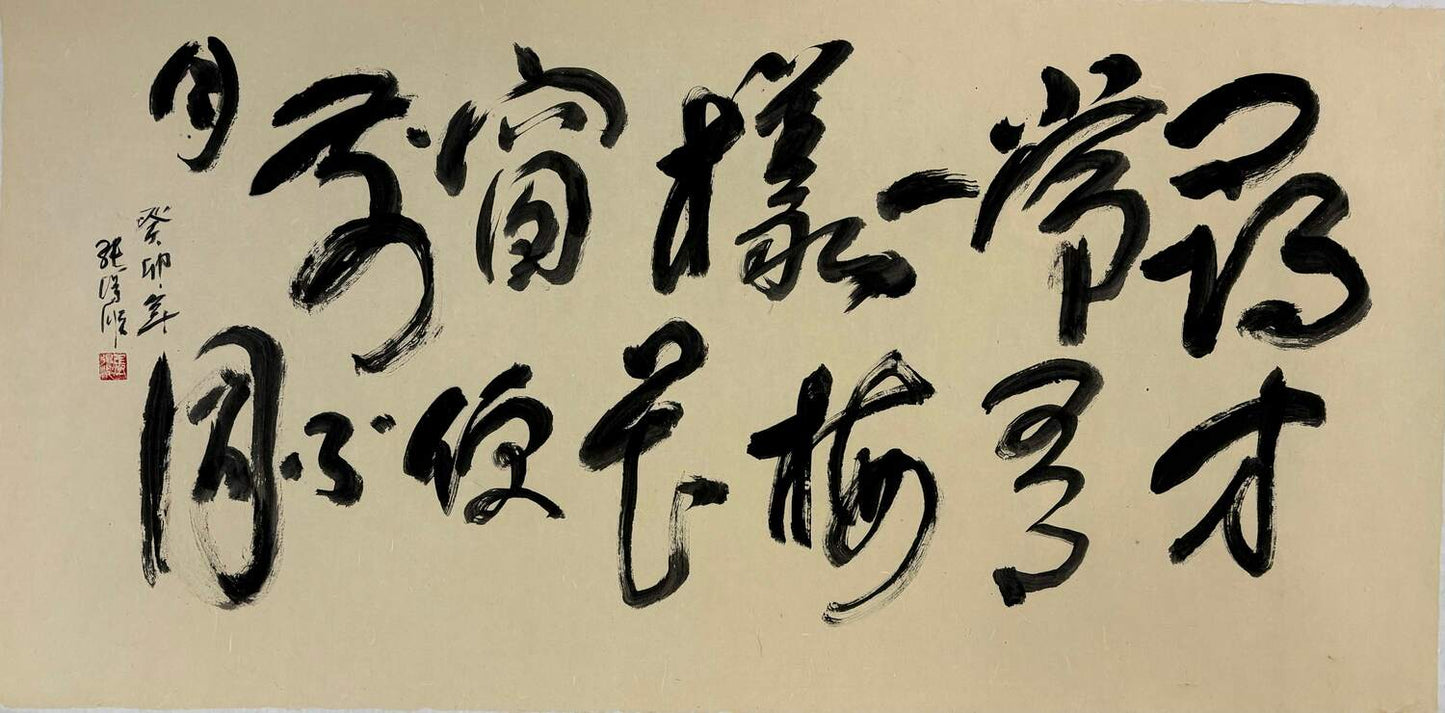 尋常一樣窗前月
才有梅花便不同
癸卯年